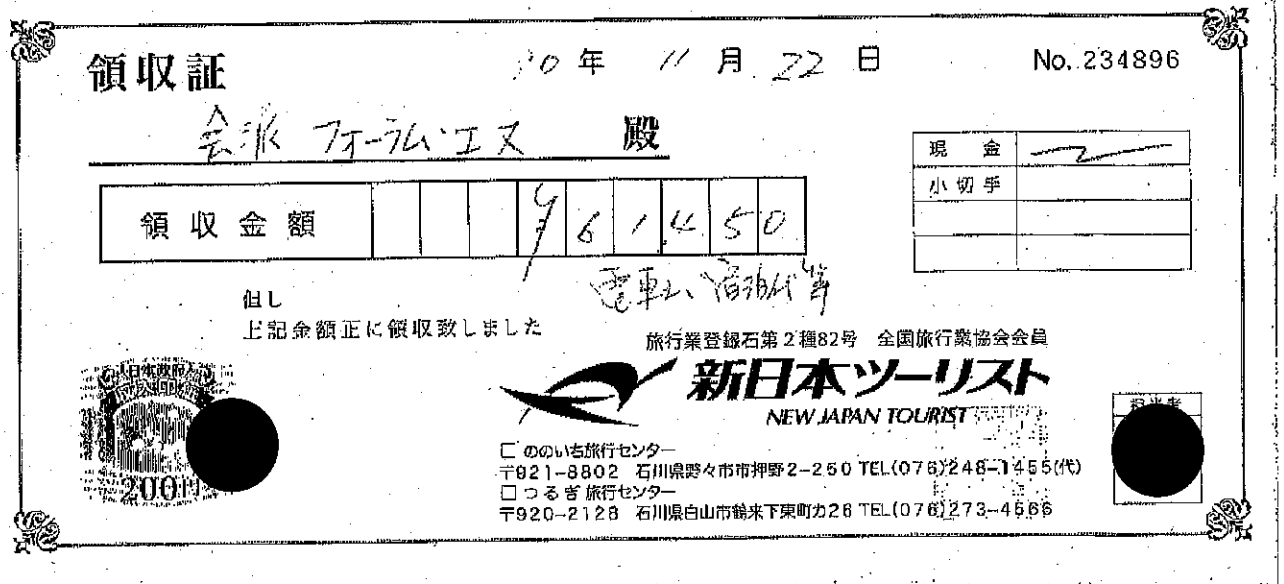 領収証
30年 11月 22日
No. 234896
会派 フォーラム・エヌ 殿
現金
小切手
領収金額 ¥61450
但し 電車代、宿泊代等
上記金額正に領収致しました
旅行業登録石第2種82号 全国旅行業協会会員
新日本ツーリスト
NEW JAPAN TOURIST
担当者
日本政府
200円
□ ののいち旅行センター
〒921-8802 石川県野々市市押野2-250 TEL(076)248-1455(代)
□ つるぎ旅行センター
〒920-2128 石川県白山市鶴来下東町カ26 TEL(076)273-4566